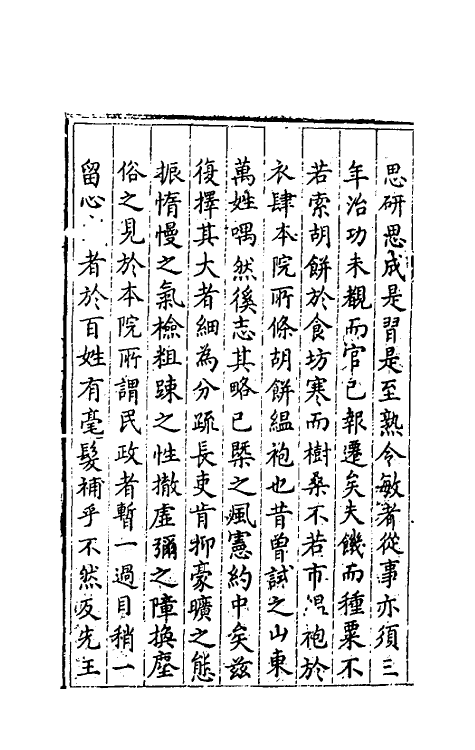 思研思成是習是至熟令敏者從事亦須三
年治功未覩而官已報遷矣夫饑而種粟不
若索胡餅於食坊寒而樹桑不若市縕袍於
衣肆本院所條胡餅縕袍也昔曽試之山東
萬姓喁然徯志其略已槩之風憲約中矣兹
復擇其大者細為分疏長吏肯抑豪曠之態
振惰慢之氣檢粗踈之性撤虚彌之障換塵
俗之見於本院所謂民政者暫一過目稍一
留心 者於百姓有毫髮補乎不然反先王